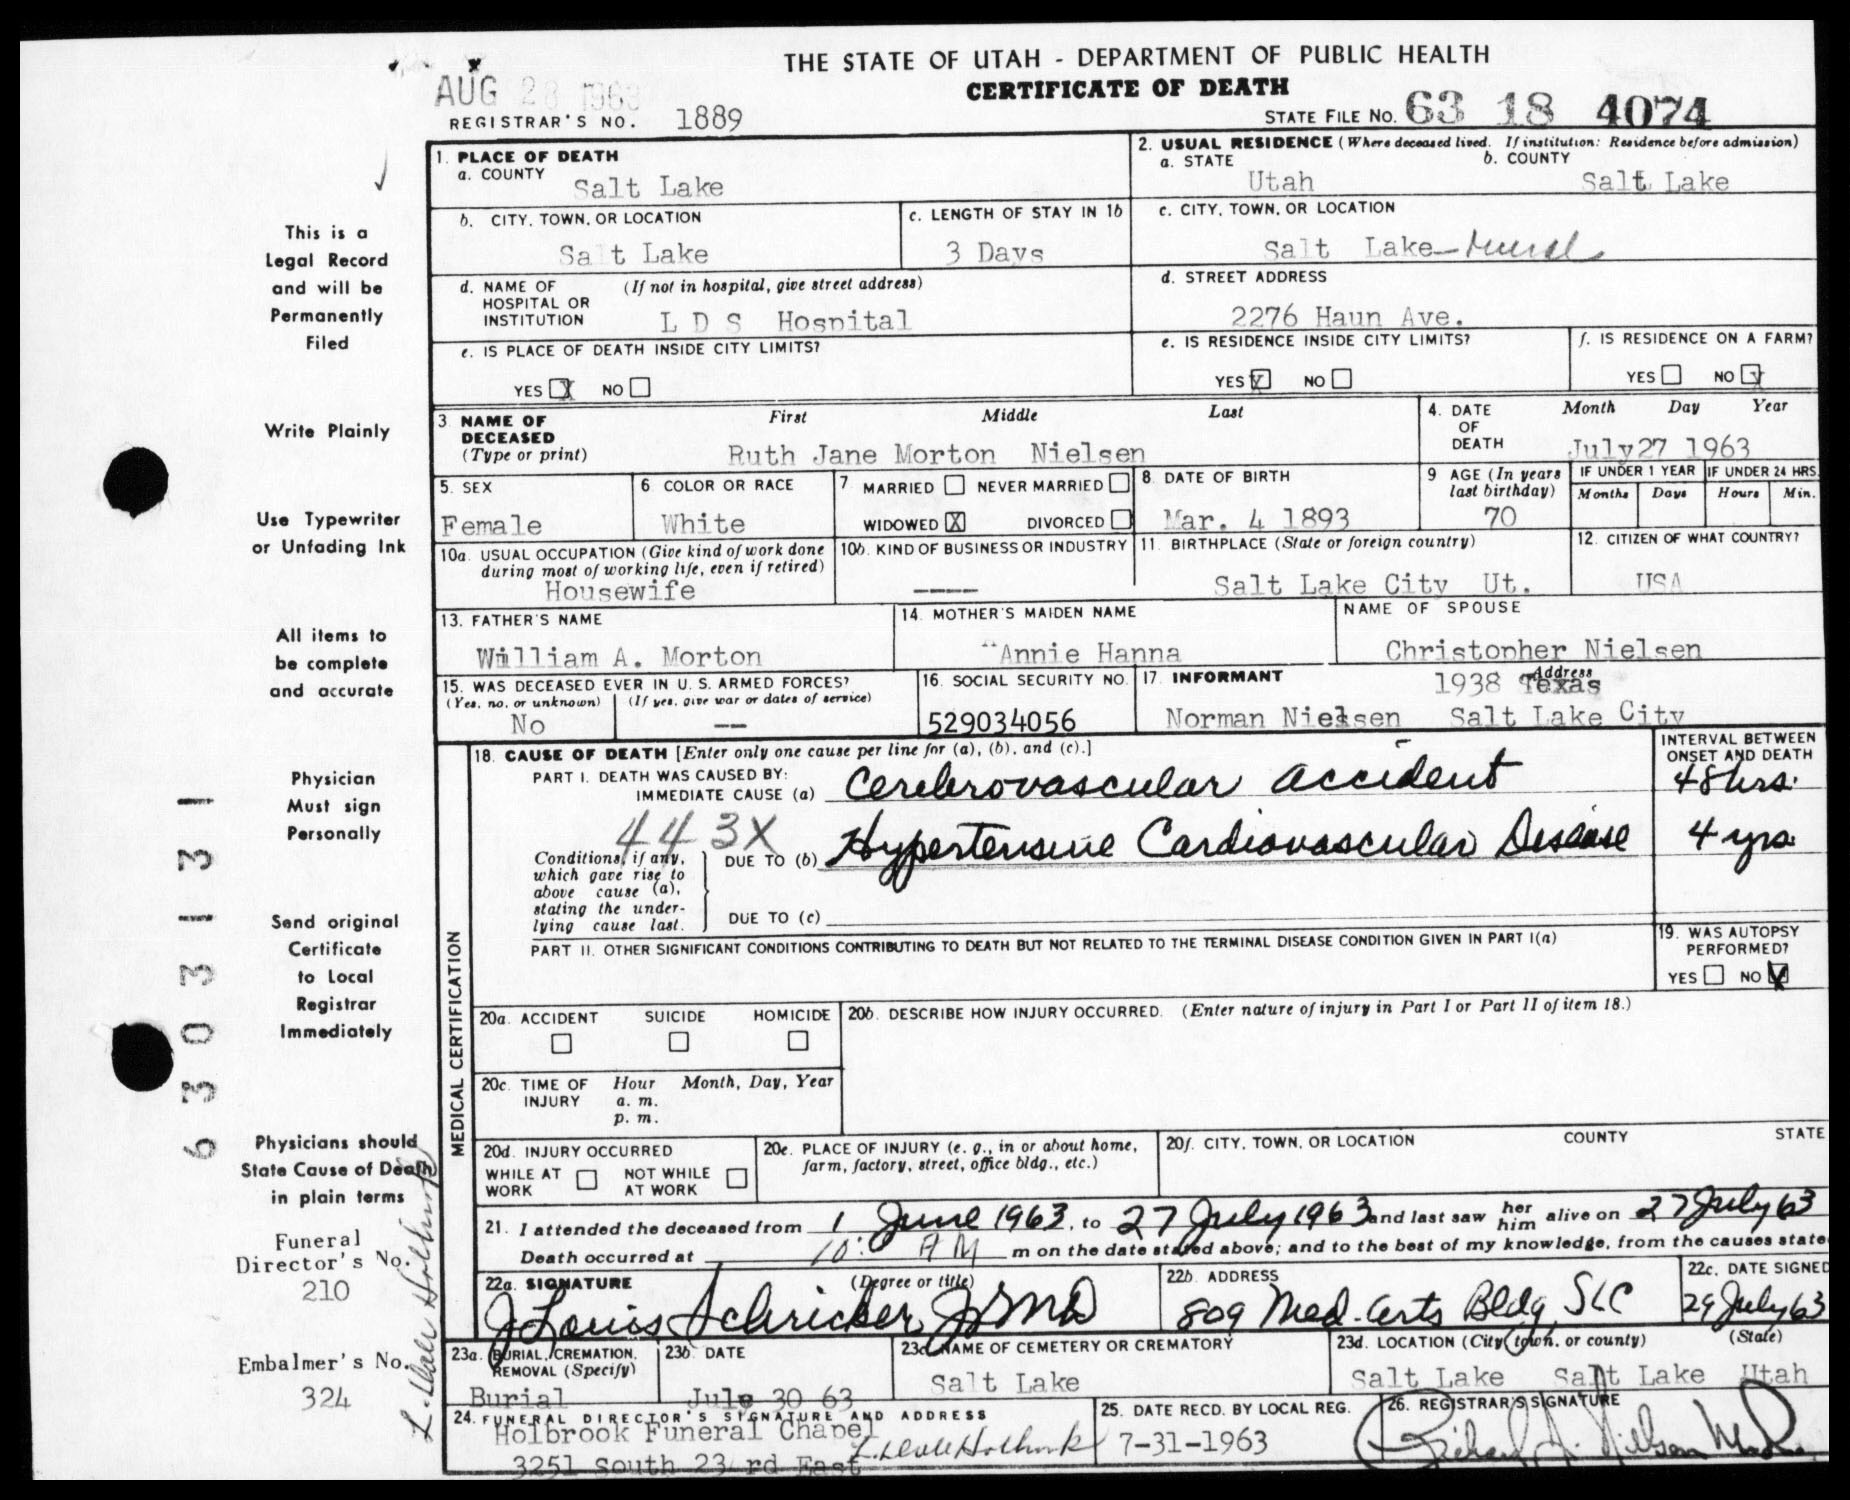 THE STATE OF UTAH - DEPARTMENT OF PUBLIC HEALTH
CERTIFICATE OF DEATH
AUG 28 1963
REGISTRAR'S NO. 1889
STATE FILE NO. 63 18 4074
1. PLACE OF DEATH
a. COUNTY
Salt Lake
2. USUAL RESIDENCE (Where deceased lived. If institution: Residence before admission)
a. STATE b. COUNTY
Utah Salt Lake
b. CITY, TOWN, OR LOCATION
Salt Lake
c. LENGTH OF STAY IN 1b
3 Days
c. CITY, TOWN, OR LOCATION
Salt Lake-rural
d. NAME OF (If not in hospital, give street address)
HOSPITAL OR
INSTITUTION L D S Hospital
d. STREET ADDRESS
2276 Haun Ave.
e. IS PLACE OF DEATH INSIDE CITY LIMITS?
YES X NO
e. IS RESIDENCE INSIDE CITY LIMITS?
YES X NO
f. IS RESIDENCE ON A FARM?
YES NO X
3. NAME OF First Middle Last
DECEASED
(Type or print) Ruth Jane Morton Nielsen
4. DATE Month Day Year
OF
DEATH July 27 1963
5. SEX
Female
6. COLOR OR RACE
White
7. MARRIED NEVER MARRIED
WIDOWED X DIVORCED
8. DATE OF BIRTH
Mar. 4 1893
9 AGE (In years
last birthday)
70
IF UNDER 1 YEAR IF UNDER 24 HRS.
Months Days Hours Min.
10a. USUAL OCCUPATION (Give kind of work done
during most of working life, even if retired)
Housewife
10b. KIND OF BUSINESS OR INDUSTRY
----
11. BIRTHPLACE (State or foreign country)
Salt Lake City Ut.
12. CITIZEN OF WHAT COUNTRY?
USA
13. FATHER'S NAME
William A. Morton
14. MOTHER'S MAIDEN NAME
Annie Hanna
NAME OF SPOUSE
Christopher Nielsen
15. WAS DECEASED EVER IN U. S. ARMED FORCES?
(Yes, no, or unknown) (If yes, give war or dates of service)
No --
16. SOCIAL SECURITY NO.
529034056
17. INFORMANT Address
1938 Texas
Norman Nielsen Salt Lake City
18. CAUSE OF DEATH [Enter only one cause per line for (a), (b), and (c).]
INTERVAL BETWEEN
ONSET AND DEATH
PART I. DEATH WAS CAUSED BY:
IMMEDIATE CAUSE (a) Cerebrovascular accident 48 hrs.
443X
Conditions, if any,
which gave rise to
above cause (a),
stating the under-
lying cause last.
DUE TO (b) Hypertensive Cardiovascular Disease 4 yrs.
DUE TO (c)
PART II. OTHER SIGNIFICANT CONDITIONS CONTRIBUTING TO DEATH BUT NOT RELATED TO THE TERMINAL DISEASE CONDITION GIVEN IN PART I(a)
19. WAS AUTOPSY
PERFORMED?
YES NO X
MEDICAL CERTIFICATION
20a. ACCIDENT SUICIDE HOMICIDE
20b. DESCRIBE HOW INJURY OCCURRED. (Enter nature of injury in Part I or Part II of item 18.)
20c. TIME OF Hour Month, Day, Year
INJURY a. m.
p. m.
20d. INJURY OCCURRED
WHILE AT NOT WHILE
WORK AT WORK
20e. PLACE OF INJURY (e. g., in or about home,
farm, factory, street, office bldg., etc.)
20f. CITY, TOWN, OR LOCATION COUNTY STATE
21. I attended the deceased from 1 June 1963, to 27 July 1963 and last saw her him alive on 27 July 63
Death occurred at 10: AM m on the date stated above; and to the best of my knowledge, from the causes state
22a. SIGNATURE (Degree or title)
J Louis Schricker, Jr MD
22b. ADDRESS
809 Med. Arts Bldg SLC
22c. DATE SIGNED
29 July 63
23a. BURIAL, CREMATION,
REMOVAL (Specify)
Burial
23b. DATE
July 30 63
23c. NAME OF CEMETERY OR CREMATORY
Salt Lake
23d. LOCATION (City, town, or county) (State)
Salt Lake Salt Lake Utah
24. FUNERAL DIRECTOR'S SIGNATURE AND ADDRESS
Holbrook Funeral Chapel L. Dale Holbrook
3251 South 23 rd East
25. DATE RECD. BY LOCAL REG.
7-31-1963
26. REGISTRAR'S SIGNATURE
Richard A. Nielsen
This is a
Legal Record
and will be
Permanently
Filed
Write Plainly
Use Typewriter
or Unfading Ink
All items to
be complete
and accurate
Physician
Must sign
Personally
Send original
Certificate
to Local
Registrar
Immediately
Physicians should
State Cause of Death
in plain terms
Funeral
Director's No.
210
Embalmer's No.
324
L. Dale Holbrook
63031-131